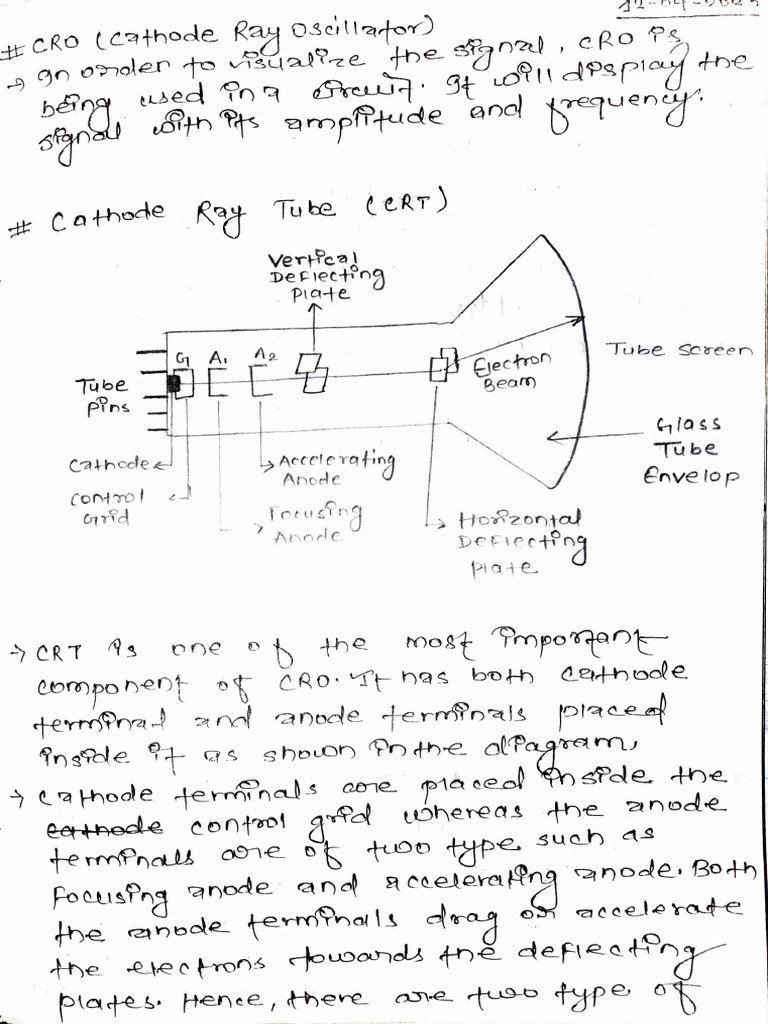 # CRO (Cathode Ray Oscillator)
→ In order to visualize the signal, CRO is
being used in a circuit. It will display the
signal with its amplitude and frequency.
# Cathode Ray Tube (CRT)
Vertical
Deflecting
Plate
G A1 A2
Tube
Pins
Electron
Beam
Tube Screen
Glass
Tube
Envelop
Cathode
Control
Grid
Accelerating
Anode
Focusing
Anode
Horizontal
Deflecting
Plate
→ CRT is one of the most important
component of CRO. It has both cathode
terminal and anode terminals placed
inside it as shown in the diagram,
→ Cathode terminals are placed inside the
cathode control grid whereas the anode
terminals are of two type such as
Focusing anode and accelerating anode. Both
the anode terminals drag or accelerate
the electrons towards the deflecting
plates. Hence, there are two type of